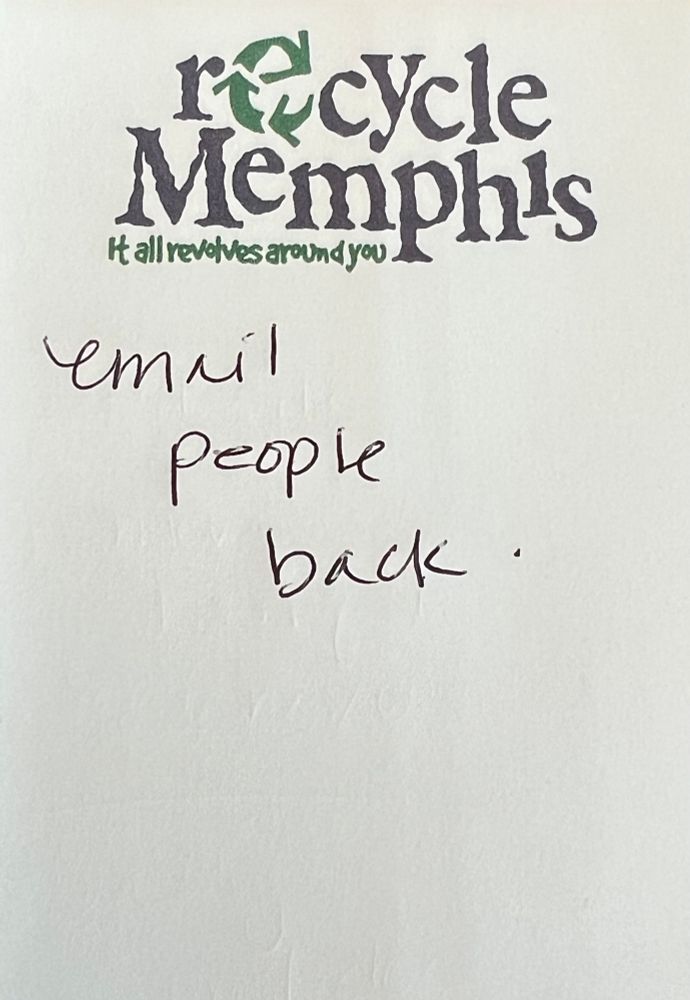 recycle
Memphis
It all revolves around you
email
people
back.